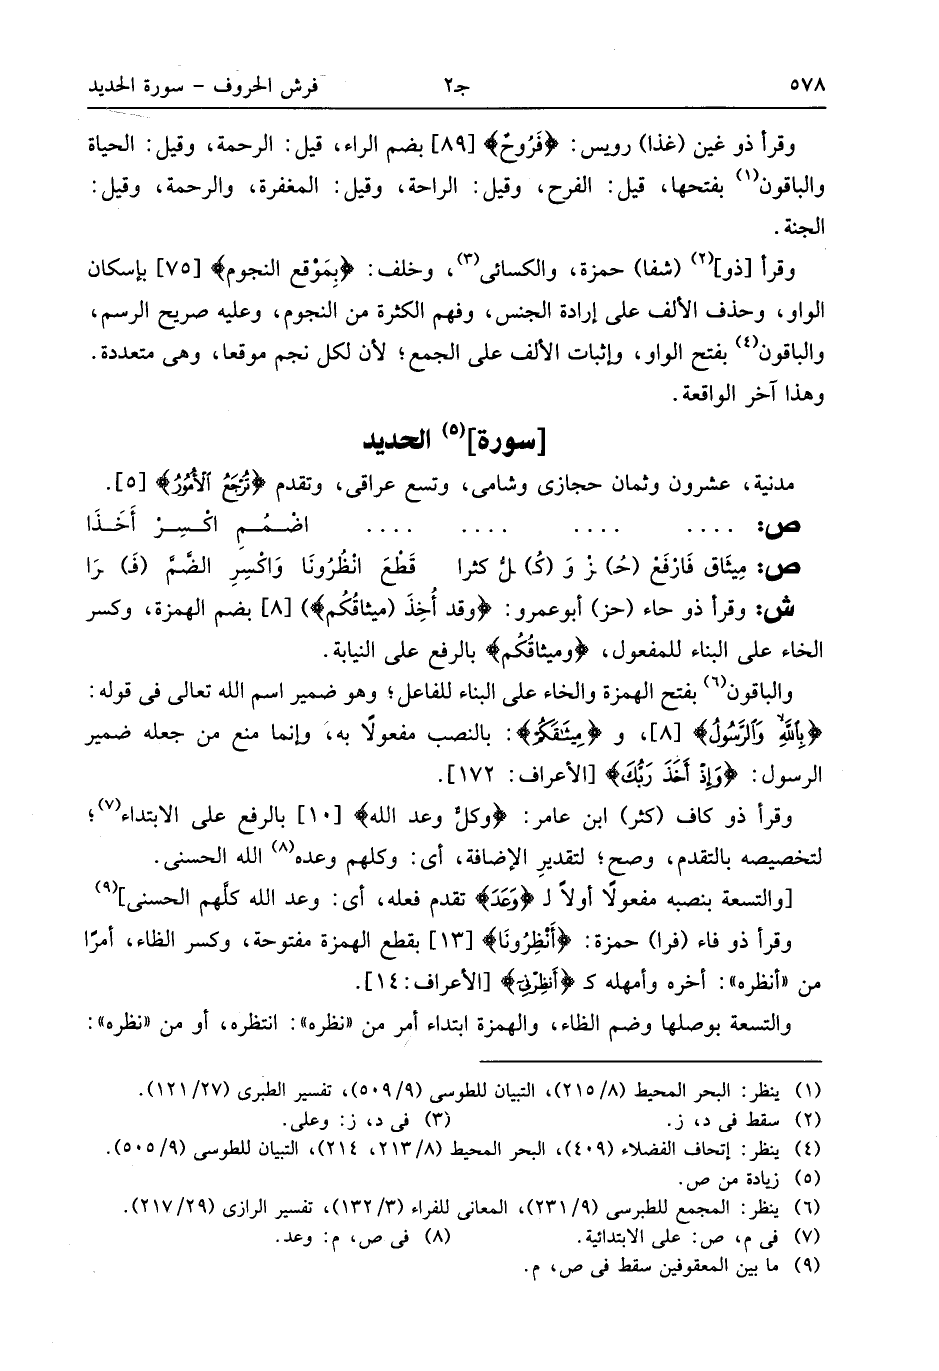 ٥٧٨ جـ٢ فرش الحروف – سورة الحديد
وقرأ ذو غين (غذا) رويس: ﴿فَرُوحٌ﴾ [٨٩] بضم الراء، قيل: الرحمة، وقيل: الحياة
والباقون(١) بفتحها، قيل: الفرح، وقيل: الراحة، وقيل: المغفرة، والرحمة، وقيل:
الجنة.
وقرأ [ذو](٢) (شفا) حمزة، والكسائى(٣)، وخلف: ﴿بِمَوْقِع النجوم﴾ [٧٥] بإسكان
الواو، وحذف الألف على إرادة الجنس، وفهم الكثرة من النجوم، وعليه صريح الرسم،
والباقون(٤) بفتح الواو، وإثبات الألف على الجمع؛ لأن لكل نجم موقعا، وهى متعددة.
وهذا آخر الواقعة.
[سورة](٥) الحديد
مدنية، عشرون وثمان حجازى وشامى، وتسع عراقى، وتقدم ﴿تُرْجَعُ ٱلْأُمُورُ﴾ [٥].
ص: .... .... .... .... اضْـمُـمِ اكْـسِـرْ أَخَـذَا
ص: مِيثَاق فَارْفَعْ (حُـ) ـزْ وَ (كُـ) ـلُ كثرا قَطْعَ انْظُرُونَا وَاكْسِرِ الضَّمَّ (فَـ) ـرَا
ش: وقرأ ذو حاء (حز) أبوعمرو: ﴿وقد أُخِذَ (ميثاقُكُم﴾) [٨] بضم الهمزة، وكسر
الخاء على البناء للمفعول، ﴿وميثاقُكُم﴾ بالرفع على النيابة.
والباقون(٦) بفتح الهمزة والخاء على البناء للفاعل؛ وهو ضمير اسم الله تعالى فى قوله:
﴿بِٱللَّهِ وَٱلرَّسُولُ﴾ [٨]، و ﴿مِيثَٰقَكُمْ﴾: بالنصب مفعولًا به، وإنما منع من جعله ضمير
الرسول: ﴿وَإِذْ أَخَذَ رَبُّكَ﴾ [الأعراف: ١٧٢].
وقرأ ذو كاف (كثر) ابن عامر: ﴿وكلٌ وعد الله﴾ [١٠] بالرفع على الابتداء(٧)؛
لتخصيصه بالتقدم، وصح؛ لتقدير الإضافة، أى: وكلهم وعده(٨) الله الحسنى.
[والتسعة بنصبه مفعولًا أولاً لـ ﴿وَعَدَ﴾ تقدم فعله، أى: وعد الله كلَّهم الحسنى](٩)
وقرأ ذو فاء (فرا) حمزة: ﴿أَنْظِرُونَا﴾ [١٣] بقطع الهمزة مفتوحة، وكسر الظاء، أمرًا
من «أنظره»: أخره وأمهله كـ ﴿أَنظِرْنِىٓ﴾ [الأعراف:١٤].
والتسعة بوصلها وضم الظاء، والهمزة ابتداء أمر من «نظره»: انتظره، أو من «نظره»:
(١) ينظر: البحر المحيط (٢١٥/٨)، التبيان للطوسى (٥٠٩/٩)، تفسير الطبرى (١٢١/٢٧).
(٢) سقط فى د، ز. (٣) فى د، ز: وعلى.
(٤) ينظر: إتحاف الفضلاء (٤٠٩)، البحر المحيط (٢١٣/٨، ٢١٤)، التبيان للطوسى (٥٠٥/٩).
(٥) زيادة من ص.
(٦) ينظر: المجمع للطبرسى (٢٣١/٩)، المعانى للفراء (١٣٢/٣)، تفسير الرازى (٢١٧/٢٩).
(٧) فى م، ص: على الابتدائية. (٨) فى ص، م: وعد.
(٩) ما بين المعقوفين سقط فى ص، م.